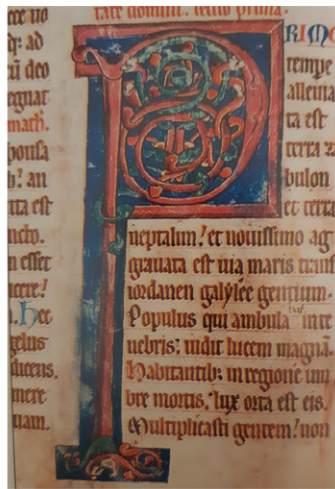 ece uo
q: ad
cū deo
egnat
math.
ponsa
an
ita est
m esset
ucere!
. Hec
gelus
dicens.
mere
uam.
tate domini. lectio prima.
PRIMO
tempe
alleuia
ta est
terra za
bulon
et terra
neptalim! et nouissimo ag
grauata est uia maris trans
iordanen galylee gentium.
Populus qui ambulabat in te
nebris: uidit lucem magnā.
Habitantib: in regione um
bre mortis, lux orta est eis.
Multiplicasti gentem! non